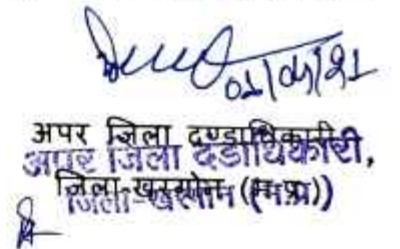 01/05/21
अपर जिला दण्डाधिकारी
अपर जिला दंडाधिकारी,
जिला-खरगोन (म.प्र.)
जिला-खरगोन (म.प्र.)